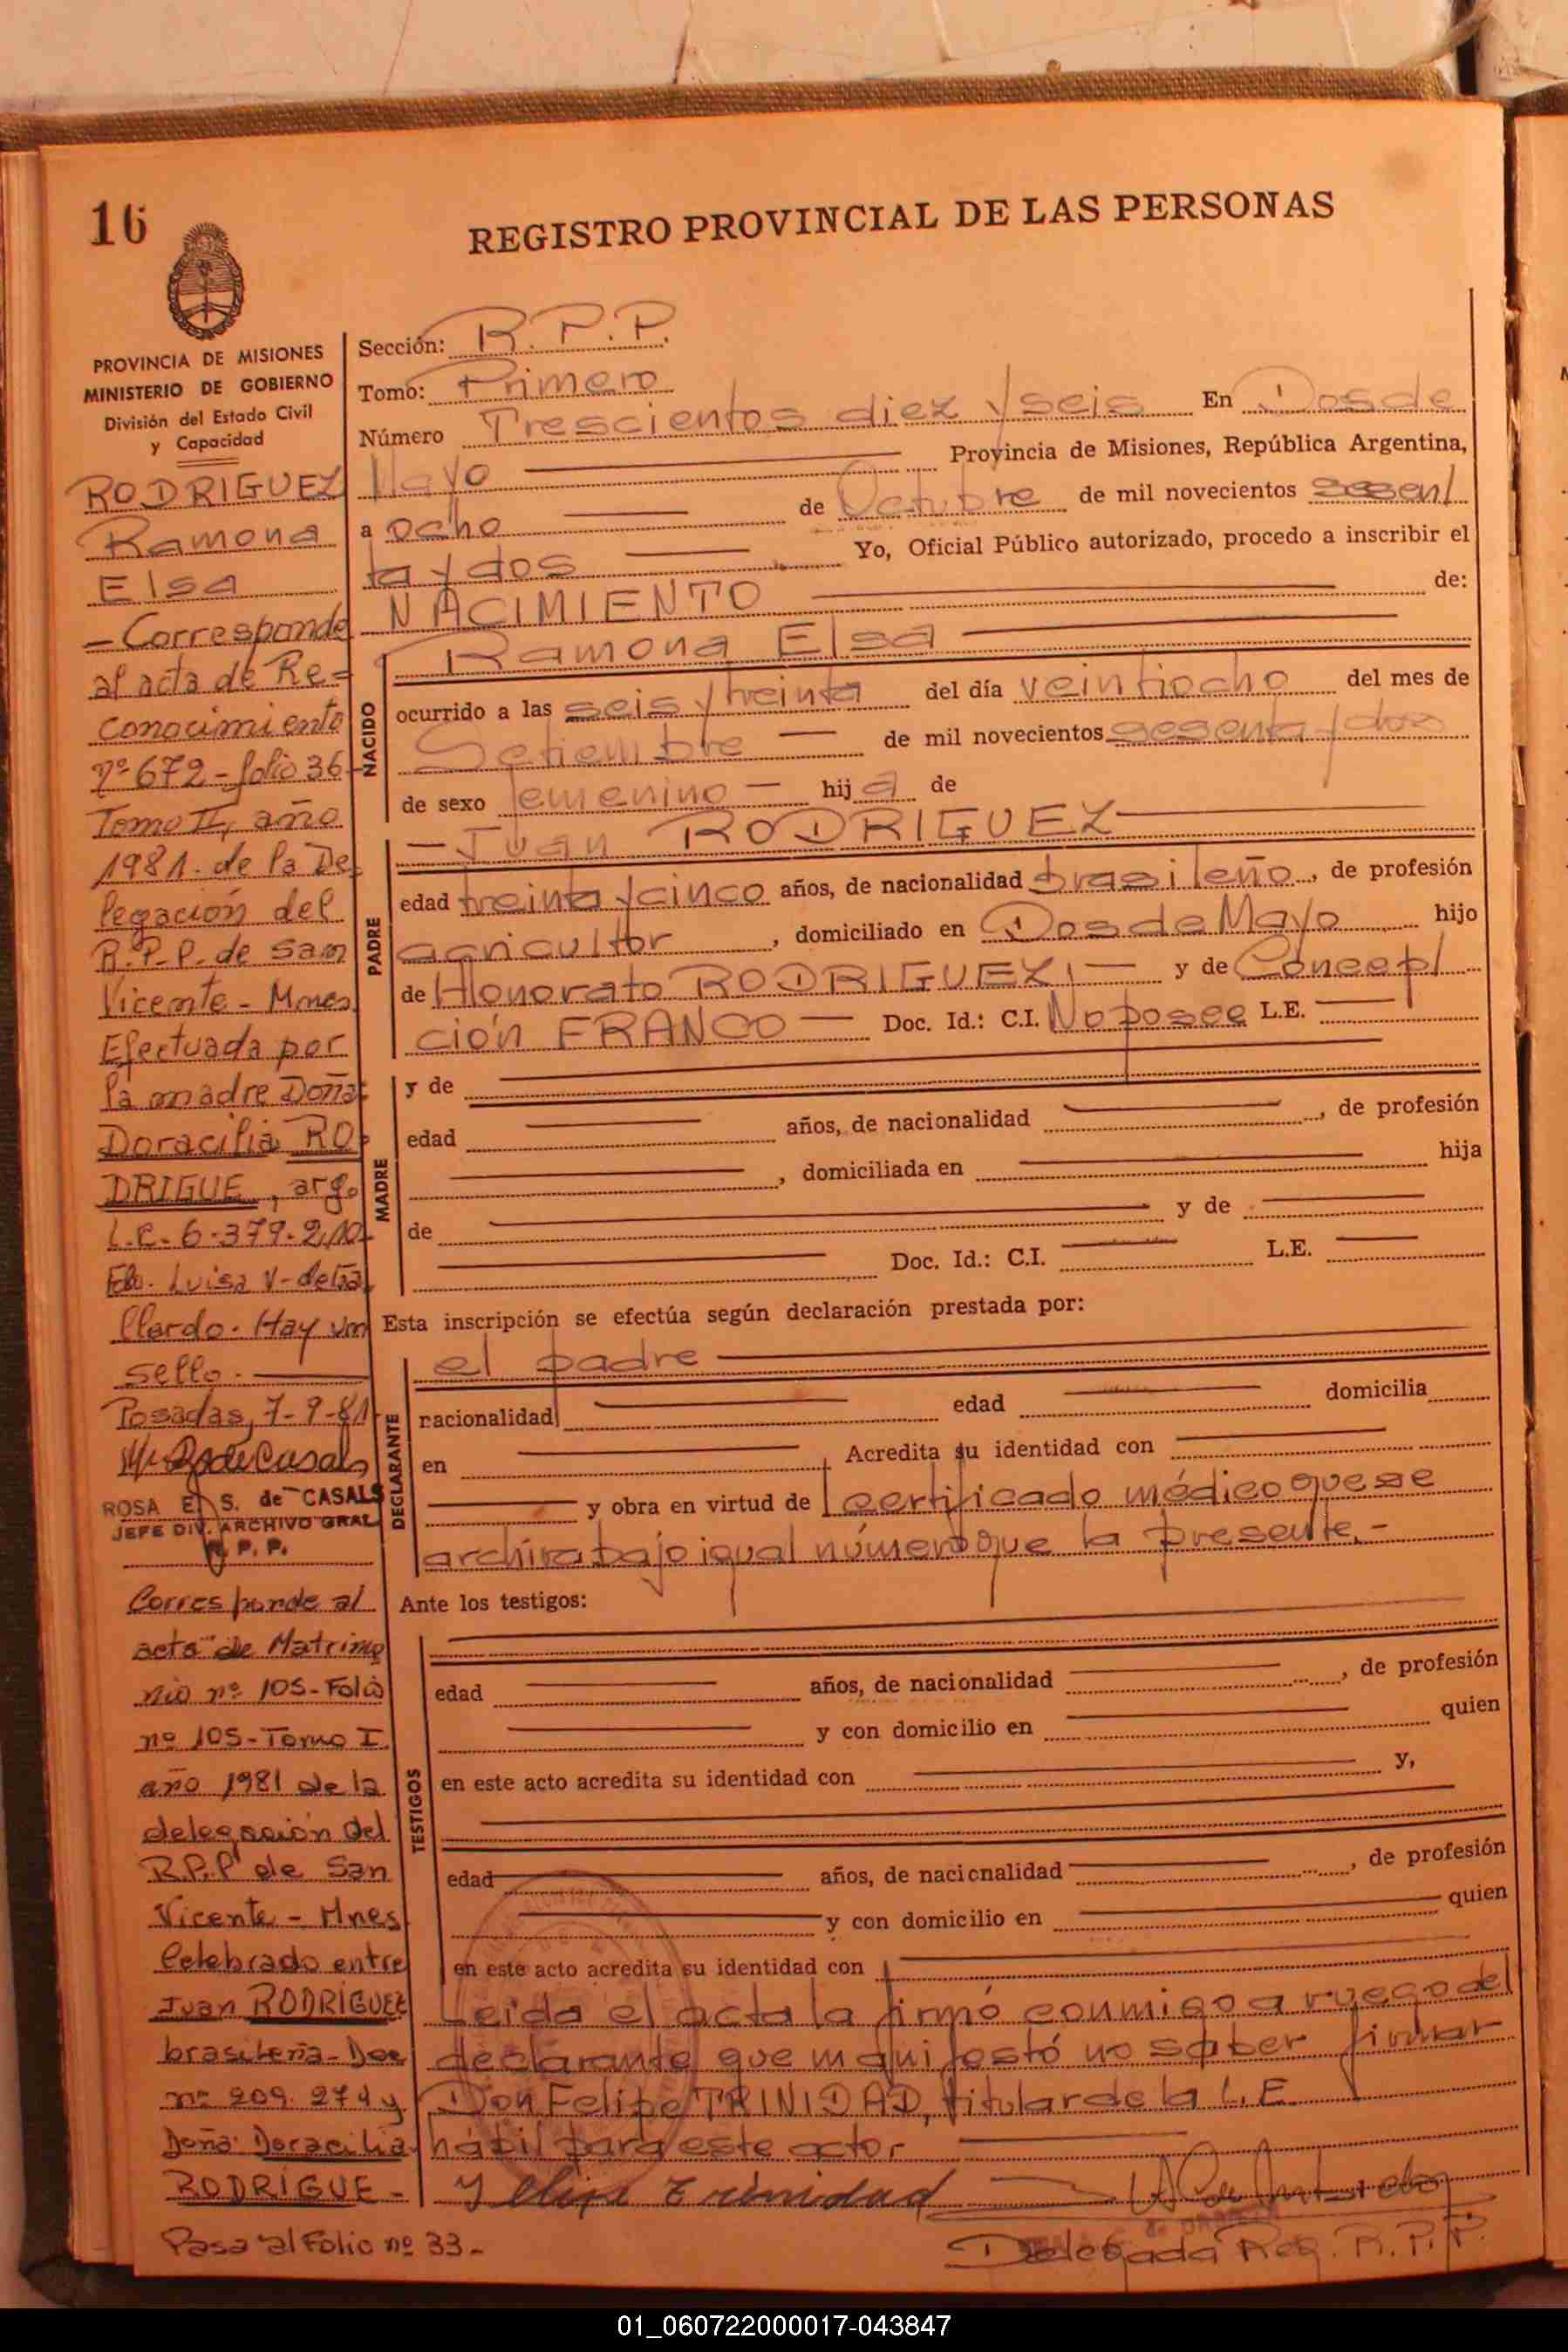 16
REGISTRO PROVINCIAL DE LAS PERSONAS
PROVINCIA DE MISIONES
MINISTERIO DE GOBIERNO
División del Estado Civil
y Capacidad
RODRIGUEZ
Ramona
Elsa
- Corresponde
al acta de Re=
conocimiento
nº 672 - folio 36-
Tomo II, año
1981. de la De
legación del
R.P.P. de San
Vicente - Mnes
Efectuada por
la madre Doña
Doracilia RO
DRIGUE, arg.
L.C. 6.379.210
Fdo. Luisa V. de Ga
llardo. Hay un
sello.
Posadas, 7-9-81
ROSA E. S. de CASALS
JEFE DIV. ARCHIVO GRAL
R. P. P.
Corresponde al
acta de Matrimo
nio nº 105-Folio
nº 105-Tomo I
año 1981 de la
delegación del
R.P.P de San
Vicente - Mnes
Celebrado entre
Juan RODRIGUEZ
brasileña - Doc
nº 209.274 y
Doña Doracilia
RODRIGUE -
Pasa al Folio nº 33 -
Sección: R.P.P.
Tomo: Primero
Número Trescientos diez y seis En Dos de
Mayo Provincia de Misiones, República Argentina,
a ocho de Octubre de mil novecientos sesen
ta y dos Yo, Oficial Público autorizado, procedo a inscribir el
NACIMIENTO de:
NACIDO
Ramona Elsa
ocurrido a las seis y treinta del día veintiocho del mes de
Setiembre de mil novecientos sesenta y dos
de sexo femenino hija de
PADRE
Juan RODRIGUEZ
edad treinta y cinco años, de nacionalidad brasileño, de profesión
agricultor, domiciliado en Dos de Mayo hijo
de Honorato RODRIGUEZ y de Concep
ción FRANCO Doc. Id.: C.I. No posee L.E.
MADRE
y de
edad años, de nacionalidad , de profesión
, domiciliada en hija
de y de
Doc. Id.: C.I. L.E.
Esta inscripción se efectúa según declaración prestada por:
DECLARANTE
el padre
nacionalidad edad domicilia
en Acredita su identidad con
y obra en virtud de certificado médico que se
archiva bajo igual número que la presente.-
Ante los testigos:
TESTIGOS
edad años, de nacionalidad , de profesión
y con domicilio en quien
en este acto acredita su identidad con y,
edad años, de nacionalidad , de profesión
y con domicilio en quien
en este acto acredita su identidad con
Leida el acta la firmó conmigo a ruego del
declarante que manifestó no saber firmar
Don Felipe TRINIDAD, titular de la L.E.
hábil para este acto.
Felipe Trinidad
Delegada Reg. R.P.P.
01_060722000017-043847